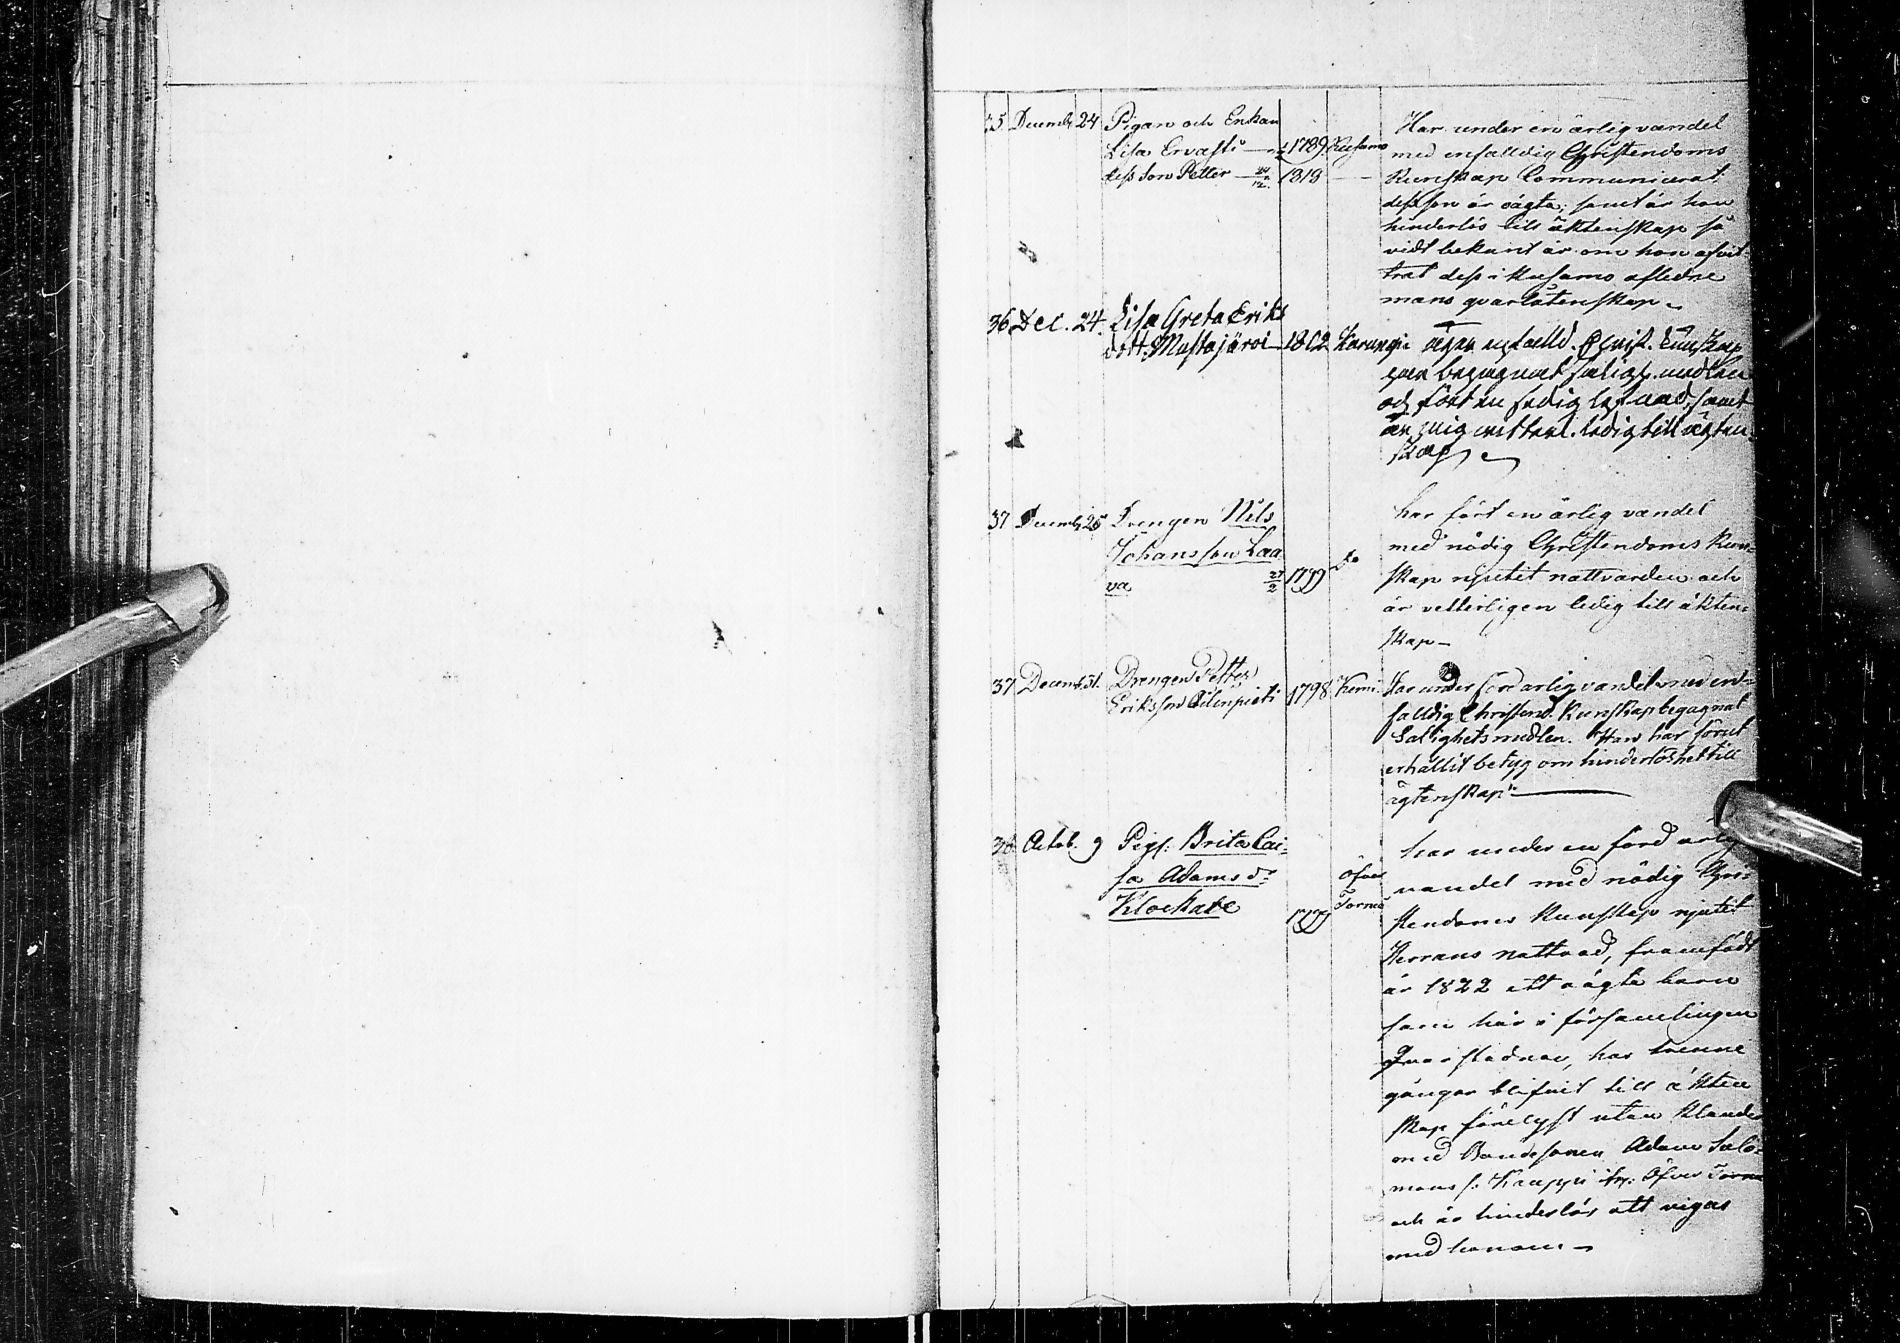 35 Decemb. 24 Pigan och Enkan
Lisa Ervasti 1789 Kusamo
dess son Petter 24/12 1818
Har under en ärlig vandel
med enfalldig Christendoms
Kunskap Communicerat
dess son är oägta; samt är hon
hinderlös till äktenskap så
vidt bekant är om hon afvit
trat dess i Kusamo afledne
mans qvarlåtenskap
36 Dec. 24. Lisa Greta Eriks
dott. Mustajärvi 1802 Karungi
äger enfalld. Christ. Kunskap
begagnat salighs. medlen
och fört en sedig lefnad, samt
är mig vitterl. ledig till ägten
skap
37 Decemb. 25 Drengen Nils
Johansson Laa
va 27/2 1799 do
har fört en ärlig vandel
med nödig Christendoms Kun-
skap njutit nattvarden och
är vetterligen ledig till äkten-
skap
37 Decemb. 31. Drengen Petter
Eriksson 1798 Kemi.
Har under förd ärlig vandel med en-
falldig Christend. Kunskap begagnat
Salighetsmedlen. Han har förut
erhållit betyg om hinderlöshet till
ägtenskap
38 Octob. 9 Pig. Brita Cai-
sa Adams dr
Klockare 1799
Öfver
Torneå
har under en förd ärlig
vandel med nödig Chri-
stendoms Kunskap njutit
Herrans nattvard, framfödt
år 1822 ett oägta barn
som här i församlingen
qvarstadnar, har trenne
gånger blifvit till äkten
skap förelyst utan klander
med Bondesonen Adam Salo-
mons s. Kauppi fr. Öfver Torneå
och är hinderlös att vigas
med honom